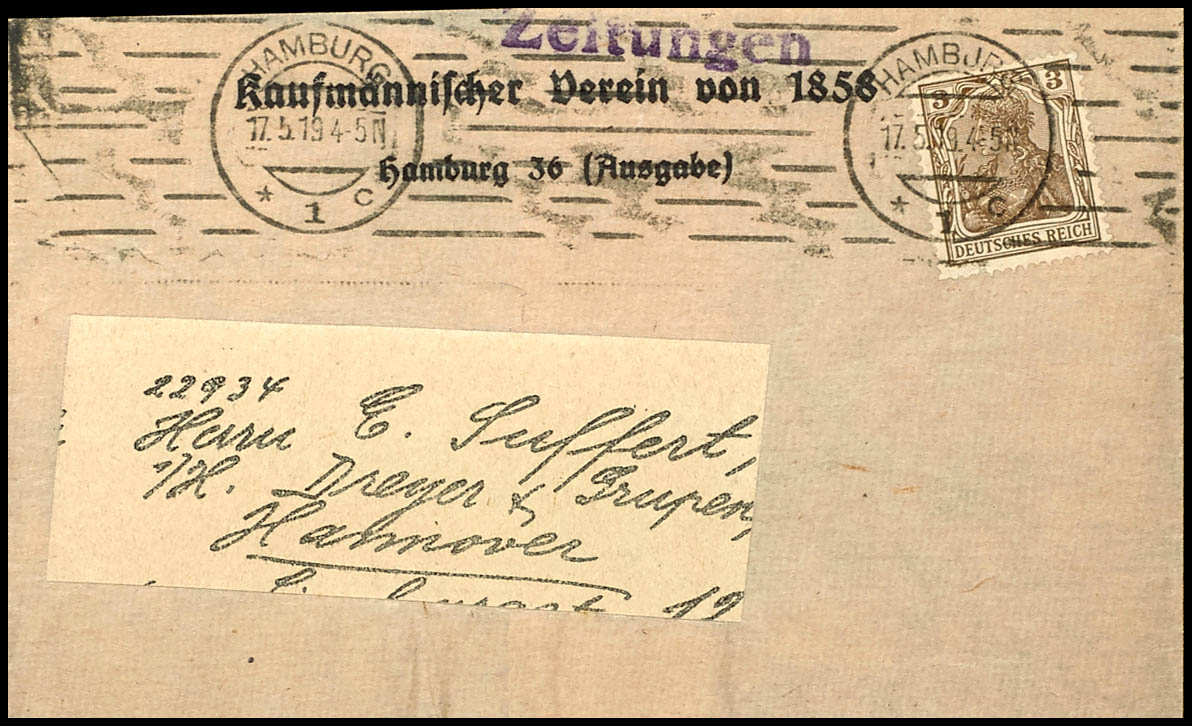 Zeitungen
Kaufmännischer Verein von 1858
Hamburg 36 (Ausgabe)
HAMBURG
17.5.19 4-5 N
* 1 C
HAMBURG
17.5.19.4-5 N
* 1 C
3 3
DEUTSCHES REICH
22934
Herrn E. Suffert,
i/H. Dreyer & Grupen,
Hannover
19